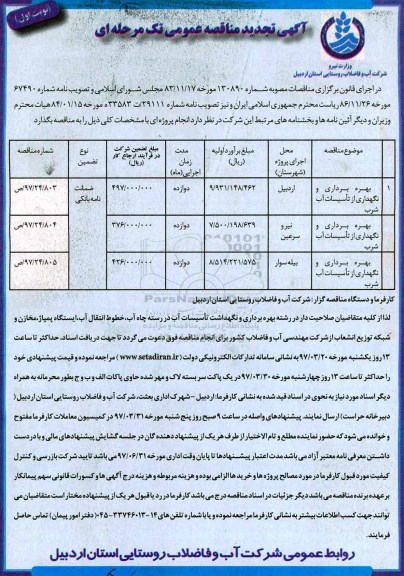 (نوبت اول)
آگهی تجدید مناقصه عمومی تک مرحله ای
وزارت نیرو
شرکت آب و فاضلاب روستایی استان اردبیل
در اجرای قانون برگزاری مناقصات مصوبه شماره ۱۳۰۸۹۰ مورخه ۸۳/۱۱/۱۷ مجلس شورای اسلامی و تصویب نامه شماره ۶۷۴۹۰
مورخه ۸۶/۱۱/۲۶ ریاست محترم جمهوری اسلامی ایران و نیز تصویب نامه شماره ۳۹۱۱۱/ت ۳۳۵۸۳ه مورخه ۸۴/۰۱/۱۵ هیات محترم
وزیران و دیگر آئین نامه ها و بخشنامه های مرتبط این شرکت در نظر دارد انجام پروژه ای با مشخصات کلی ذیل را به مناقصه بگذارد
موضوع مناقصه محل اجرای پروژه (شهرستان) مبلغ برآورد اولیه (ریال) مدت زمان اجرایی(ماه) مبلغ تضمین شرکت در فرآیند ارجاع کار (ریال) نوع تضمین شماره مناقصه
۱ بهره برداری و نگهداری از تأسیسات آب شرب اردبیل ۹/۹۳۱/۱۴۸/۴۶۲ دوازده ۴۹۷/۰۰۰/۰۰۰ ضمانت نامه بانکی ۹۷/۲۴/۸۰۳/ص
بهره برداری و نگهداری از تأسیسات آب شرب نیر و سرعین ۷/۵۰۰/۱۹۸/۶۳۹ دوازده ۳۷۶/۰۰۰/۰۰۰ ۹۷/۲۴/۸۰۴/ص
بهره برداری و نگهداری از تأسیسات آب شرب بیله سوار ۸/۵۱۴/۲۲۱/۵۷۵ دوازده ۴۲۶/۰۰۰/۰۰۰ ۹۷/۲۴/۸۰۵/ص
کارفرما و دستگاه مناقصه گزار: شرکت آب و فاضلاب روستایی استان اردبیل
لذا از کلیه متقاضیان صلاحیت دار در رشته بهره برداری و نگهداشت تأسیسات آب در رسته چاه آب، خطوط انتقال آب، ایستگاه پمپاژ، مخازن و
شبکه توزیع انشعاب از شرکت مهندسی آب و فاضلاب کشور برای انجام مناقصه فوق دعوت می گردد تا جهت دریافت اسناد، حداکثر تا ساعت
۱۳ روز یکشنبه مورخه ۹۷/۰۳/۲۰ به نشانی سامانه تدارکات الکترونیکی دولت (www.setadiran.ir) مراجعه نموده و قیمت پیشنهادی خود
را حداکثر تا ساعت ۱۳ روز چهارشنبه مورخه ۹۷/۰۳/۳۰ در یک پاکت سربسته لاک و مهر شده حاوی پاکات الف و ب و ج بطور محرمانه به همراه
دیگر اسناد مورد نیاز به نحوی در اسناد قید شده به نشانی کارفرما: اردبیل - شهرک اداری بعثت، شرکت آب و فاضلاب روستایی استان اردبیل (
دبیرخانه حراست) ارسال نمایند. پیشنهادهای واصله در ساعت ۹ صبح روز پنج شنبه مورخه ۹۷/۰۳/۳۱ در کمیسیون معاملات کارفرما مفتوح
و خوانده می شود که حضور نماینده مطلع و تام الاختیار از طرف هر یک از پیشنهاد دهنده گان در جلسه گشایش پیشنهادهای مالی و با در دست
داشتن معرفی نامه معتبر آزاد می باشد مدت اعتبار پیشنهادها تا پایان وقت اداری مورخه ۹۷/۰۶/۳۱ می باشد تایید شرکت بازرسی و کنترل
کیفیت مورد قبول کارفرما در مورد مصالح پروژه ها و خرید ها الزامی بوده و هزینه مربوطه و هزینه درج آگهی ها و کسورات قانونی سهم پیمانکار
برعهده برنده مناقصه می باشد دیگر جزئیات در اسناد مناقصه درج می باشد کارفرما در رد یا قبول هر یک از پیشنهاده مختار است متقاضیان می
توانند جهت کسب اطلاعات بیشتر به نشانی کارفرما مراجعه نموده و یا با شماره تلفن های ۱۴-۳۳۷۴۶۰۱۳-۰۴۵ (دفتر امور پیمان) تماس حاصل
فرمایند.
روابط عمومی شرکت آب و فاضلاب روستایی استان اردبیل